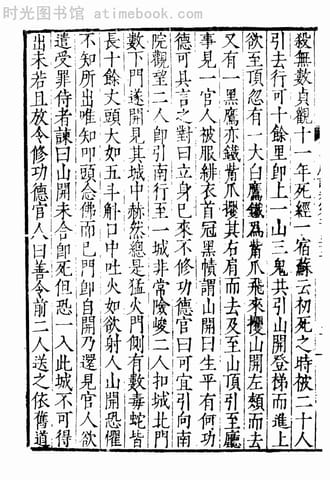 时光图书馆 - www.atimebook.com
殺無數貞觀十一年死經一宿蘇云初死之時被二十人
引去行可十餘里即上一山三鬼共引山開登梯而進上
欲至頂忽有一大白鷹鐵爲觜爪飛來攫山開左頰而去
又有一黑鷹亦鐵觜爪攫其右肩而去及至山頂引至廳
事見一官人被服緋衣首冠黑幘謂山開曰生平有何功
德可具言之對曰立身已來不修功德官曰可宜引向南
院觀望二人卽引南行至一城非常險峻二人扣城北門
數下門遂開見其城中赫然總是猛火門側有數毒蛇皆
長十餘丈頭大如五斗斛口中吐火如欲射人山開恐懼
不知所出唯知叩頭念佛而已門卽自開乃還見官人欲
遣受罪侍者諫曰山開未合卽死但恐一入此城不可得
出未若且放令修功德官人曰善令前二人送之依舊道